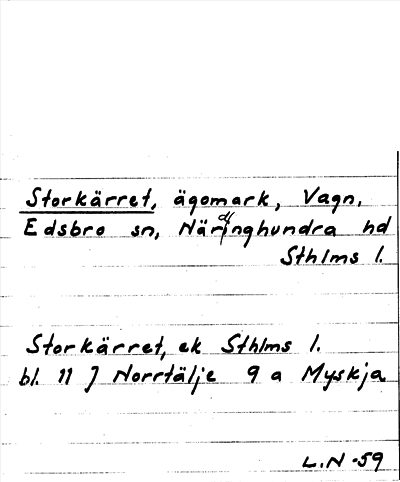 Storkärret, ägomark, Vagn,
Edsbro sn, Närdinghundra hd
Sthlms l.
Storkärret, ek Sthlms l.
bl. 11 J Norrtälje 9 a Myskja
L.N -59